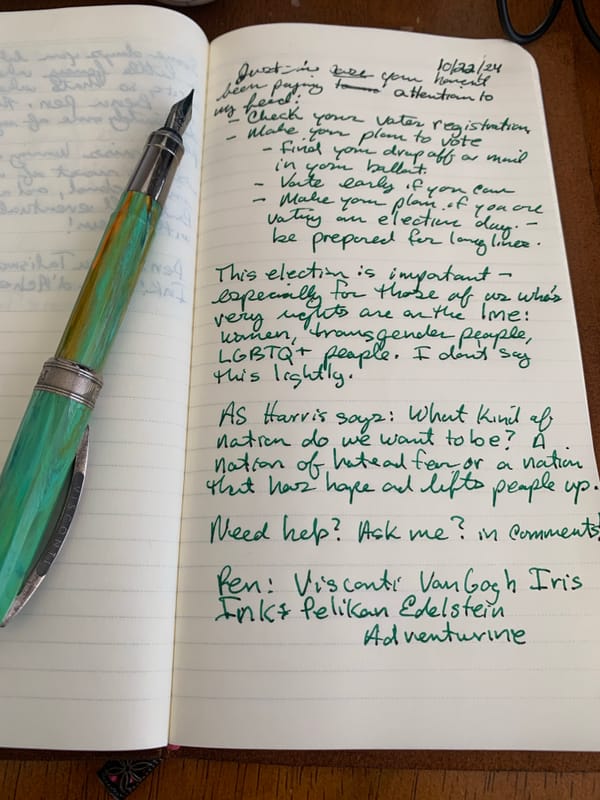 10/22/24
Just in case your haven't
been paying attention to
my feed:
- Check your voter registration
- Make your plan to vote
- Find your drop off or mail
in your ballot.
- Vote early if you can
- Make your plan if you are
voting on election day. -
be prepared for long lines.
This election is important -
especially for those of us who's
very rights are on the line:
women, transgender people,
LGBTQ+ people. I don't say
this lightly.
AS Harris says: What kind of
nation do we want to be? A
nation of hate and fear or a nation
that has hope and lifts people up.
Need help? Ask me? in comments!
Pen: Visconti Van Gogh Iris
Ink: Pelikan Edelstein
Adventurine